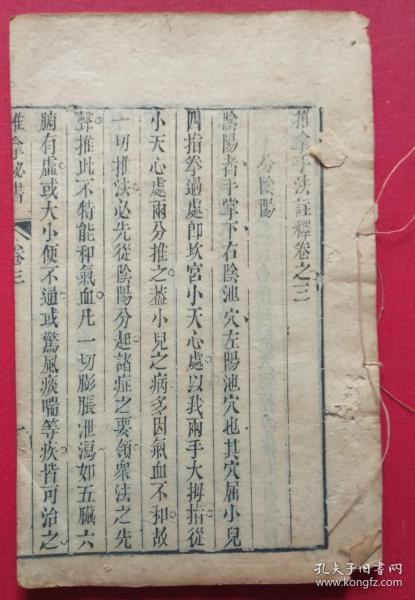 推拿手法註釋卷之三
分陰陽
陰陽者手掌下右陰池穴左陽池穴也其穴屈小兒
四指拳過處即坎宮小天心處以我兩手大拇指從
小天心處兩分推之蓋小兒之病多因氣血不和故
一切推法必先從陰陽分起諸症之要領眾法之先
聲推此不特能和氣血凡一切膨脹泄瀉如五臟六
腑有虛或大小便不通或驚風痰喘等疾皆可治之
推拿秘書
卷三
一
孔夫子旧书网
www.kongfz.com